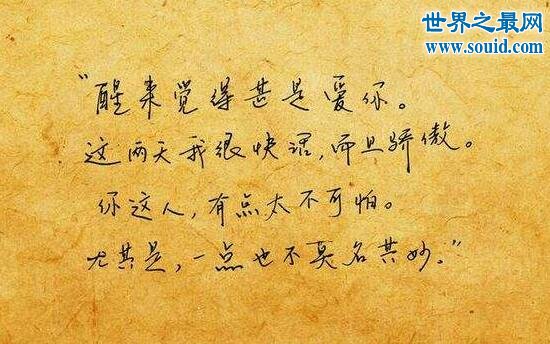 世界之最网
www.souid.com
“醒来觉得甚是爱你。
这两天我很快活，而且骄傲。
你这人，有点太不可怕。
尤其是，一点也不莫名其妙。”